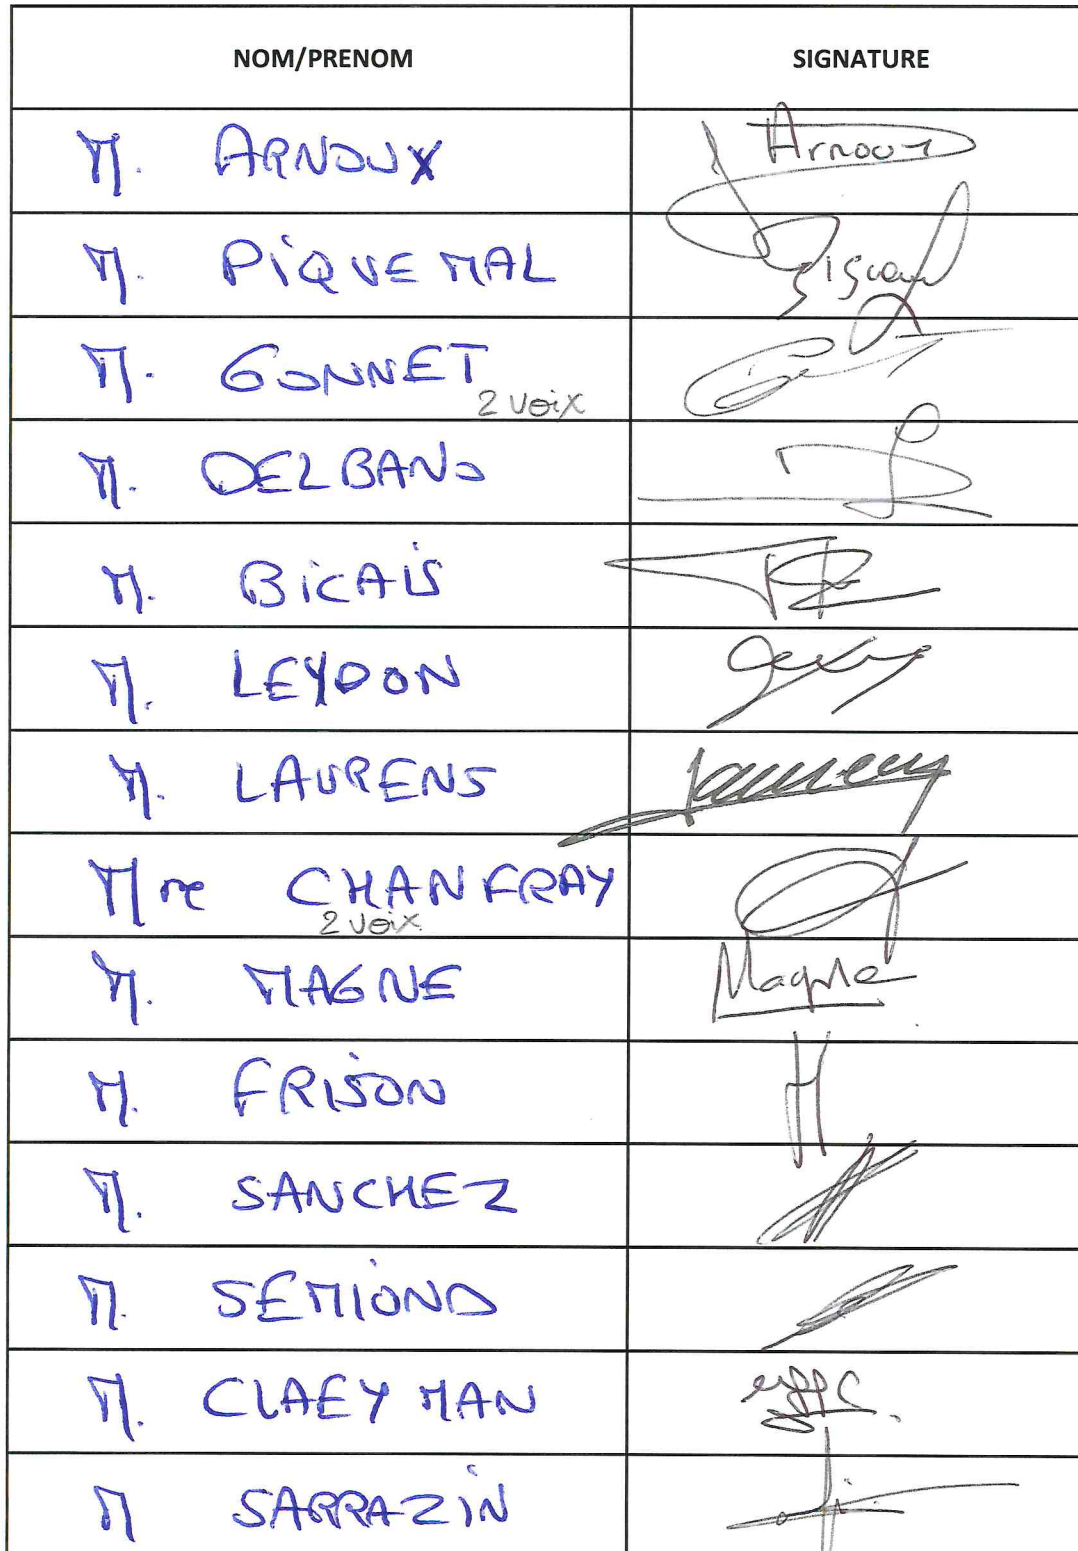 NOM/PRENOM SIGNATURE
M. ARNOUX Arnoux
M. PIQUEMAL
M. GONNET
2 voix
M. DELBANO
M. BICAIS
M. LEYDON
M. LAURENS
Mme CHANFRAY
2 voix
M. MAGNE Magne
M. FRISON
M. SANCHEZ
M. SEMIOND
M. CLAEYMAN
M SARRAZIN